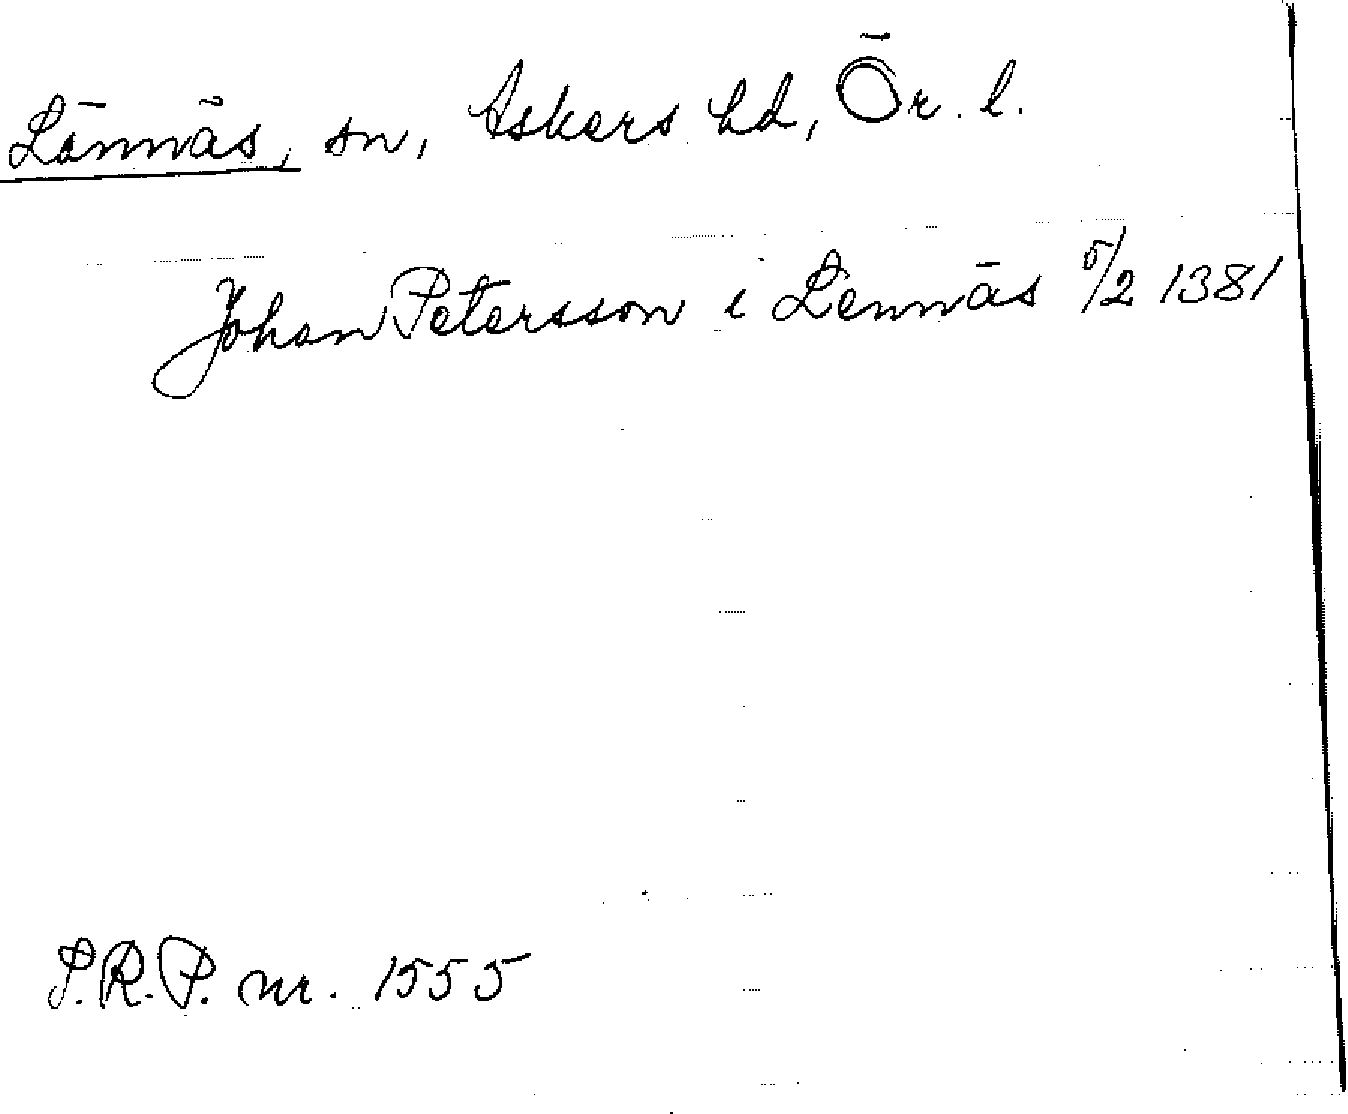 Lännäs, sn, Askers hd, Ör. l.
Johan Petersson i Lennäs 5/2 1381
S.R.P. nr. 1555